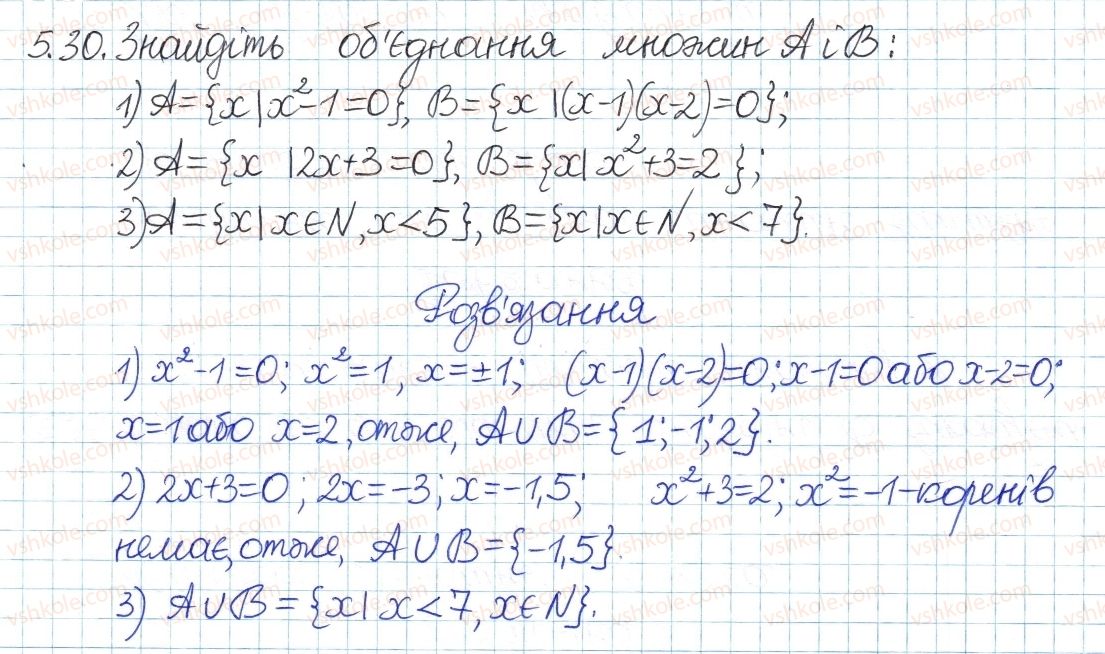 5.30. Знайдіть об'єднання множин A і B:
1) A={x|x²-1=0}, B={x|(x-1)(x-2)=0};
2) A={x|2x+3=0}, B={x|x²+3=2};
3) A={x|x∈N, x<5}, B={x|x∈N, x<7}.
Розв'язання
1) x²-1=0; x²=1, x=±1; (x-1)(x-2)=0; x-1=0 або x-2=0;
x=1 або x=2, отже, A∪B={1;-1;2}.
2) 2x+3=0; 2x=-3; x=-1,5; x²+3=2; x²=-1-коренів
немає, отже, A∪B={-1,5}.
3) A∪B={x|x<7, x∈N}.